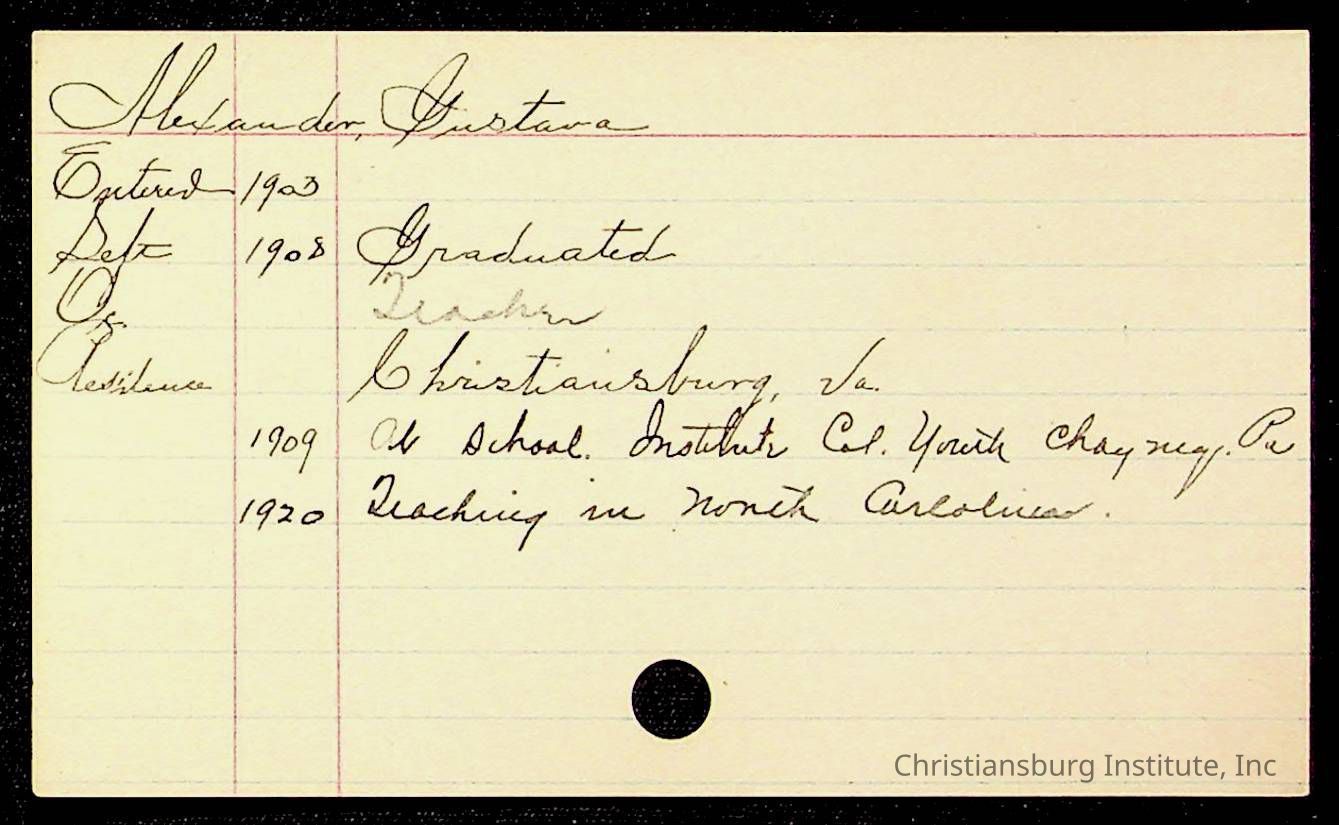 Alexander, Gustava
Entered 1903
Left 1908 Graduated
Oc Teacher
Residence Christiansburg, Va.
1909 At School. Institute Col. Youth Chayney. Pa
1920 Teaching in North Carolina.
Christiansburg Institute, Inc